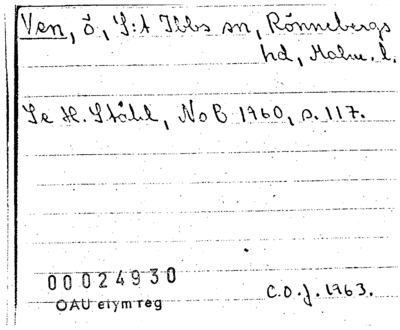 Ven, ö, S:t Ibbs sn, Rönnebergs
hd, Malm. l.
Se H. Ståhl, NoB 1960, s. 117.
00024930
OAU etym reg
C.O.J. 1963.